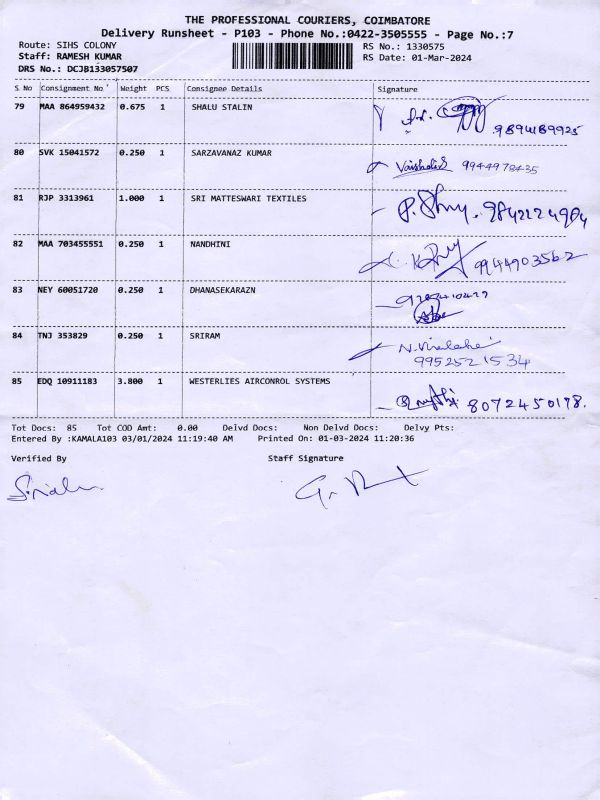 THE PROFESSIONAL COURIERS, COIMBATORE
Delivery Runsheet - P103 - Phone No.:0422-3505555 - Page No.:7
Route: SIHS COLONY RS No.: 1330575
Staff: RAMESH KUMAR RS Date: 01-Mar-2024
DRS No.: DCJB133057507
S No Consignment No Weight PCS Consignee Details Signature
79 MAA 864959432 0.675 1 SHALU STALIN
9894189925
80 SVK 15041572 0.250 1 SARZAVANAZ KUMAR
9944978435
81 RJP 3313961 1.000 1 SRI MATTESWARI TEXTILES
9842224904
82 MAA 703455551 0.250 1 NANDHINI
9944903562
83 NEY 60051720 0.250 1 DHANASEKARAZN
84 TNJ 353829 0.250 1 SRIRAM
9952521534
85 EDQ 10911183 3.800 1 WESTERLIES AIRCONROL SYSTEMS
8072450178.
Tot Docs: 85 Tot COD Amt: 0.00 Delvd Docs: Non Delvd Docs: Delvy Pts:
Entered By :KAMALA103 03/01/2024 11:19:40 AM Printed On: 01-03-2024 11:20:36
Verified By Staff Signature